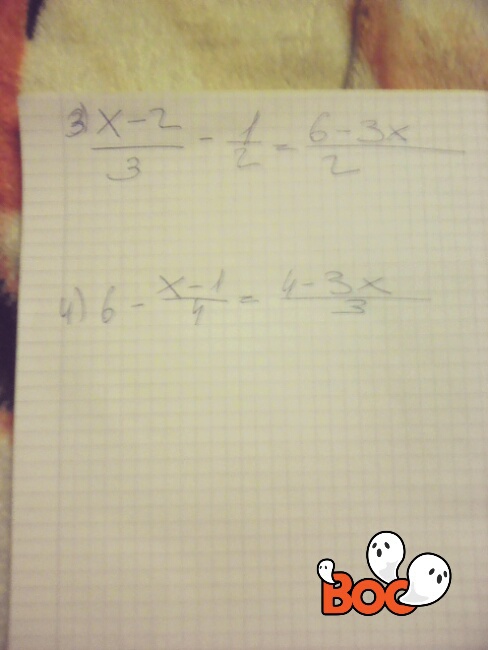 3) x-2/3 - 1/2 = 6-3x/2
4) 6 - x-1/4 = 4-3x/3
BOO